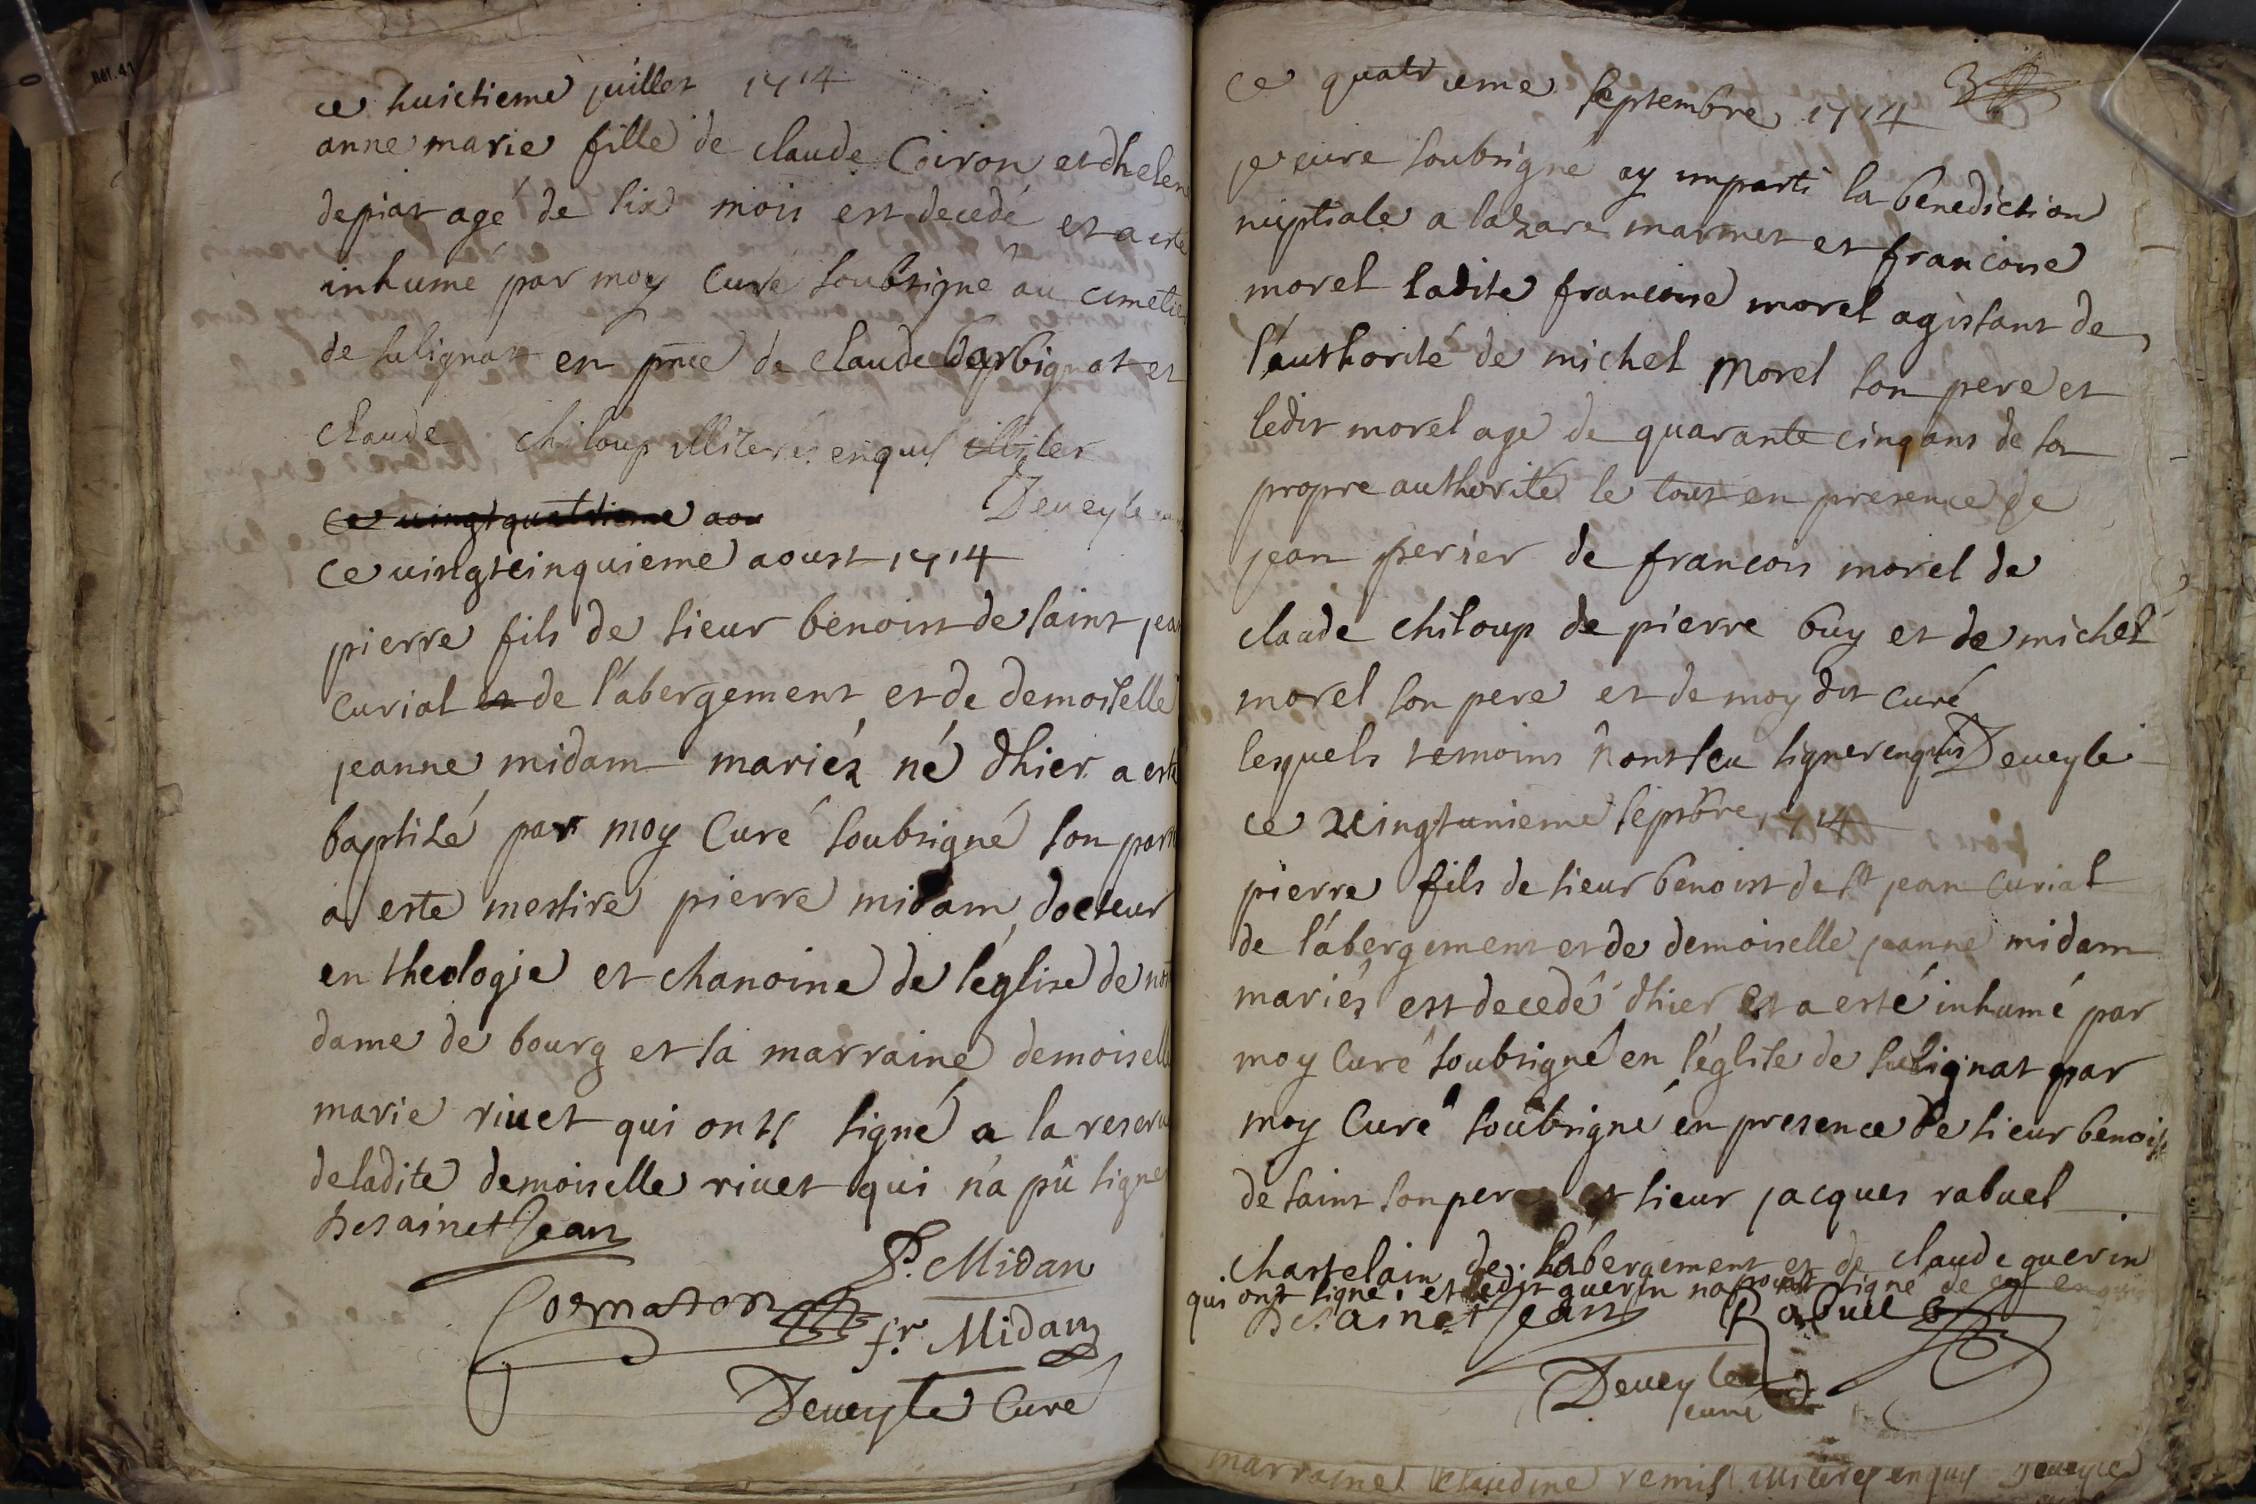 ce huictieme juillet 1714
anne marie fille de claude Coiron et dhelen
depiat agé de six mois est decedé et a este
inhumé par moy Curé soubsigné au cimetie
de sulignat en pnce de claude darbignat et
claude chiloup illiterés enquis illiter
Deueyle
ce uingt quattrieme aou
Ce uingtcinquieme aoust 1714
pierre fils de sieur benoist de saint jean
Curial et de l'abergement et de demoiselle
jeanne midam mariéz né dhier a este
baptisé par moy Curé soubsigné son parr
a este messire pierre midam docteur
en theologie et chanoine de l'église de not
dame de bourg et sa marraine demoiselle
marie riuet qui onts signé a la reseru
deladite demoiselle riuet qui n'a pû signe
Desainet Jean
P. Midan
Cormaton
fr. Midan
Deueyle Curé
ce quatrieme septembre 1714
je cure soubsigné ay imparti la benediction
nuptiale a lazare marmet et francoise
morel ladite francoise morel agissant de
l'authorité de michel Morel son pere et
ledit morel age de quarante cinq ans de sa
propre authorité le tout en presence de
jean perier de francois morel de
claude chiloup de pierre buy et de michel
morel son pere et de moy dit curé
lesquels temoins n'ont sçu signer enquis Deueyle
ce uingtunieme sepbre 1714
pierre fils de sieur benoist de st jean Curial
de l'abergement et de demoiselle jeanne midam
mariés est decedé dhier et a esté inhumé par
moy Curé soubsigné en l'églite de sulignat par
moy Curé soubsigné en presence de sieur benoist
de saint son pere et sieur jacques rabuel
chastelain de l'abergement et de claude guerin
qui ont signé, et ledit guerin na pouuoit signé de ce enquis
Desainet Jean Rabuel
Deueyle
curé
marraine Claudine remis illiterés enquis Deueyle